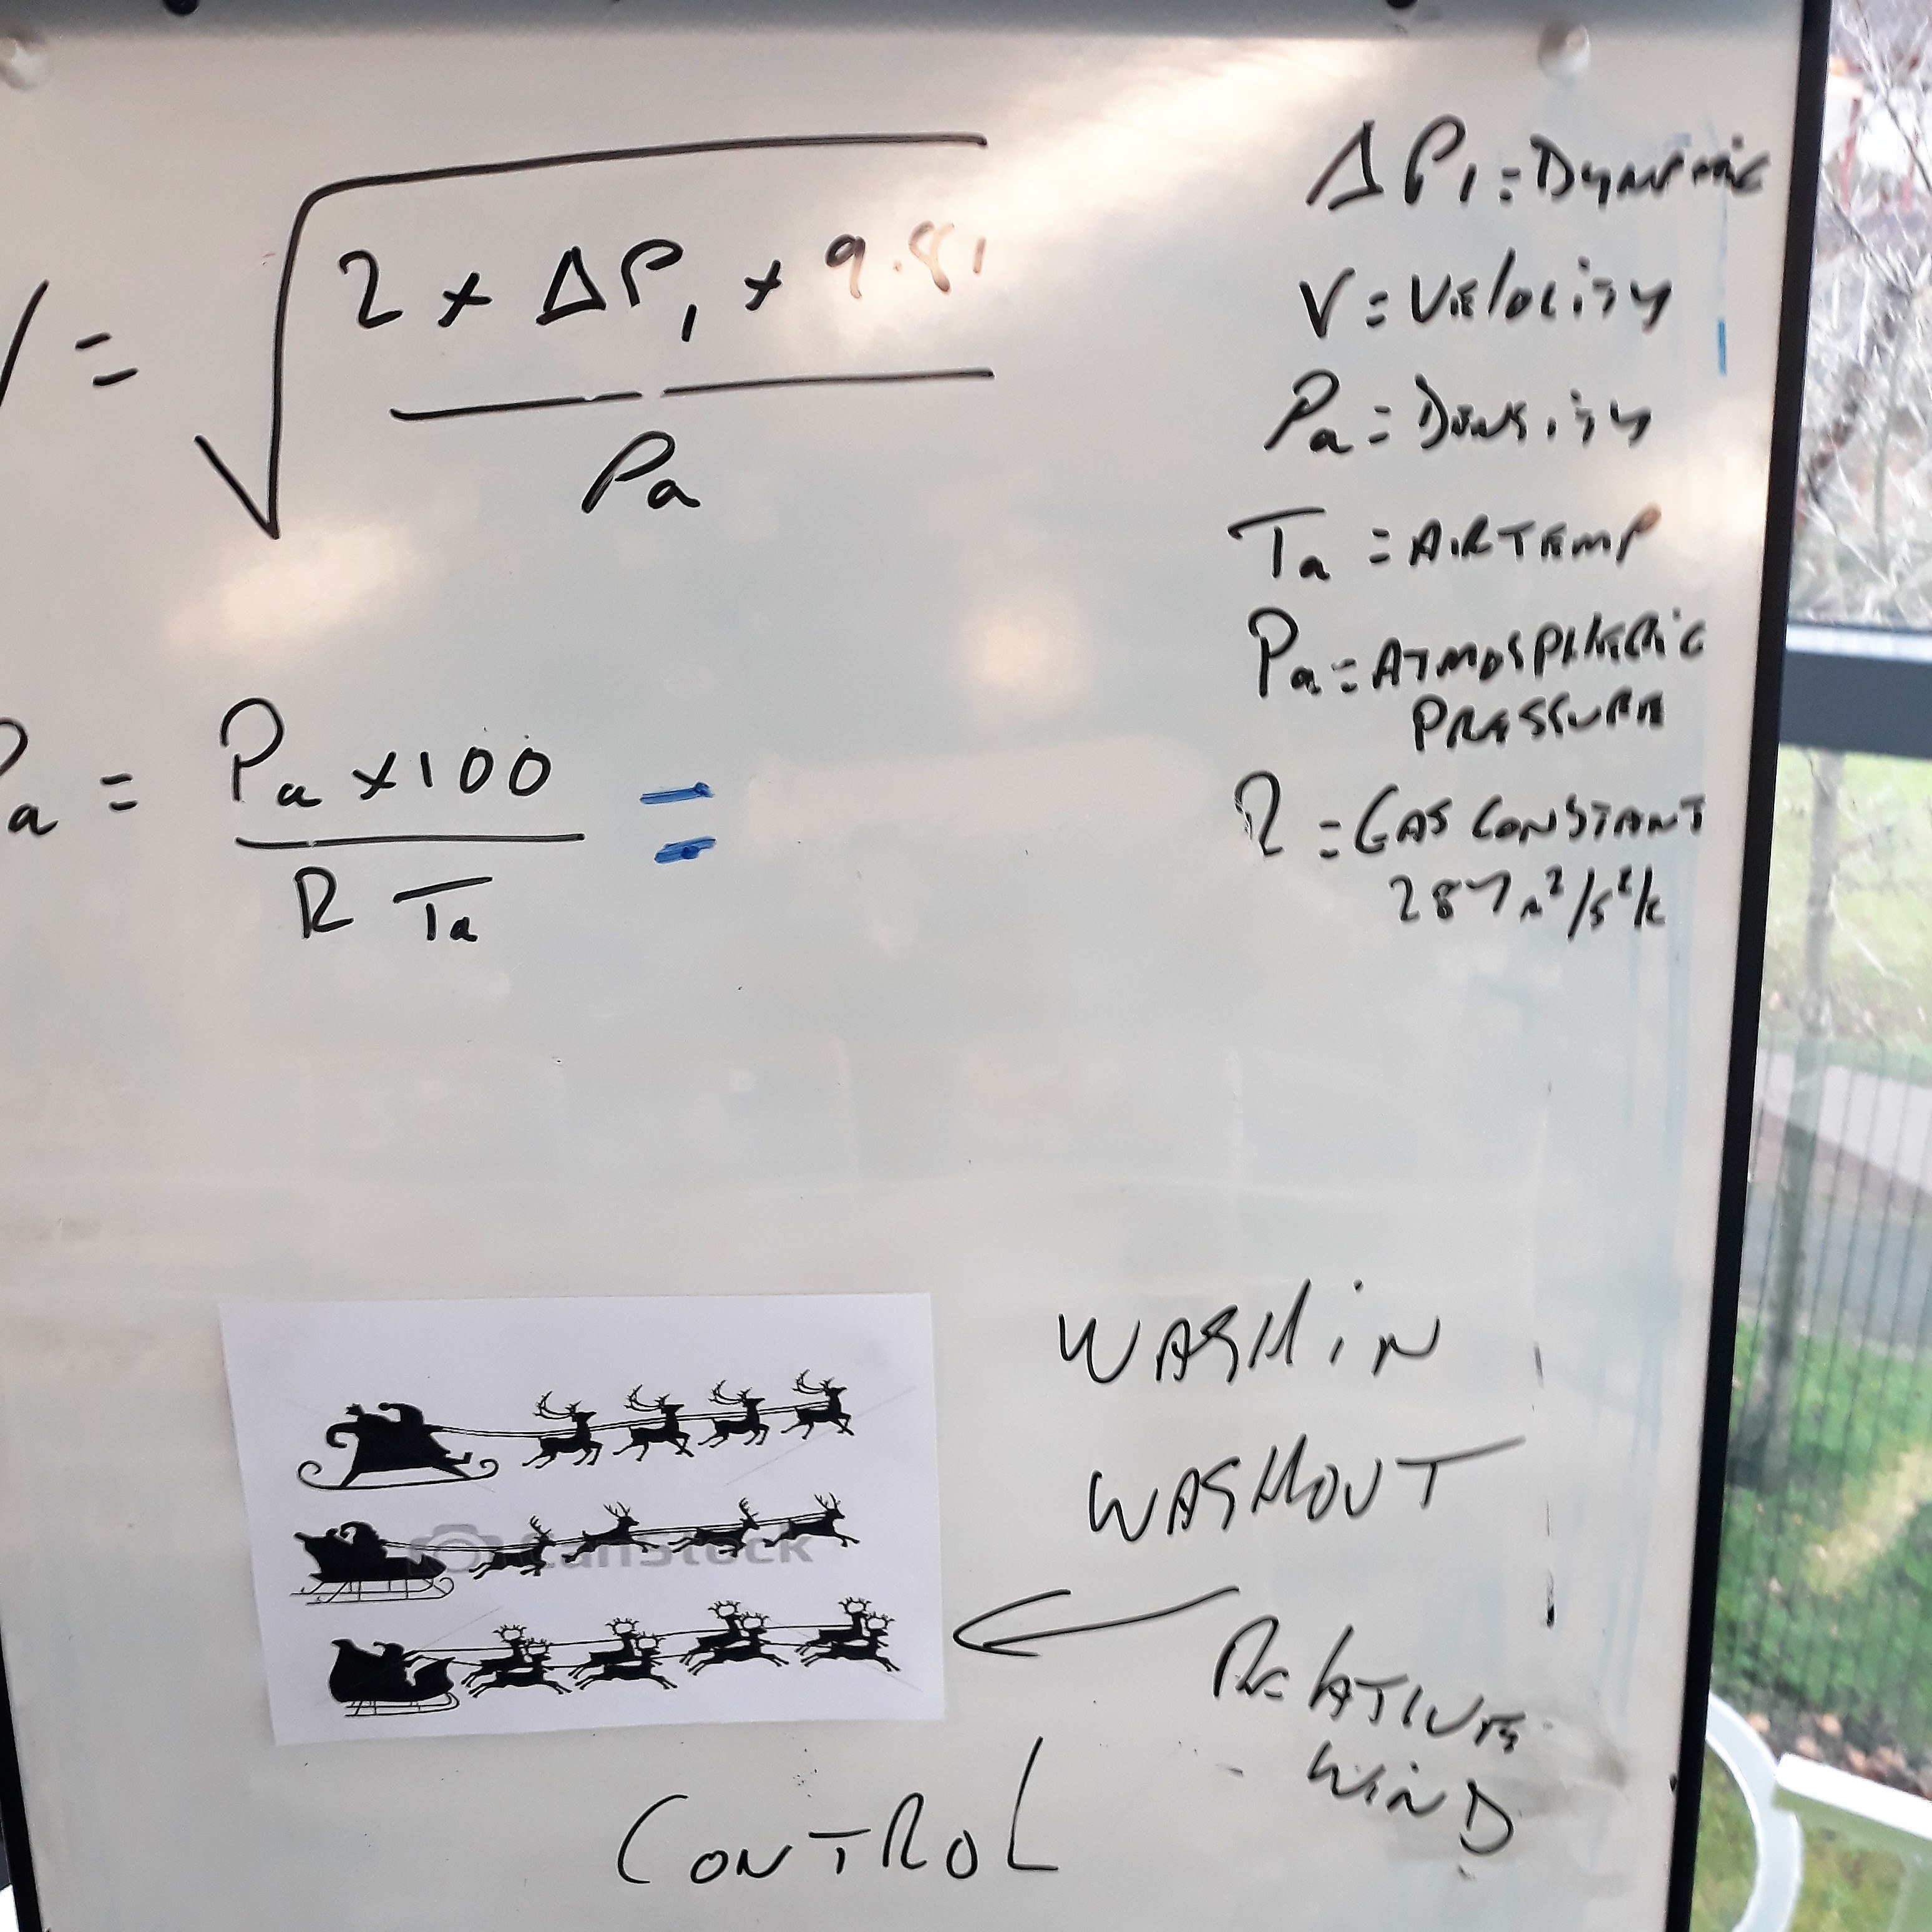 V = √ 2 × ΔP₁ × 9.81
Pa
Pa = Pa × 100 =
R Ta
ΔP₁ = Dynamic
V = Velocity
Pa = Density
Ta = AIR TEMP
Pa = ATMOSPHERIC
PRESSURE
R = GAS CONSTANT
287 m²/s²/k
CanStock
WASHIN
WASHOUT
RELATIVE
WIND
CONTROL